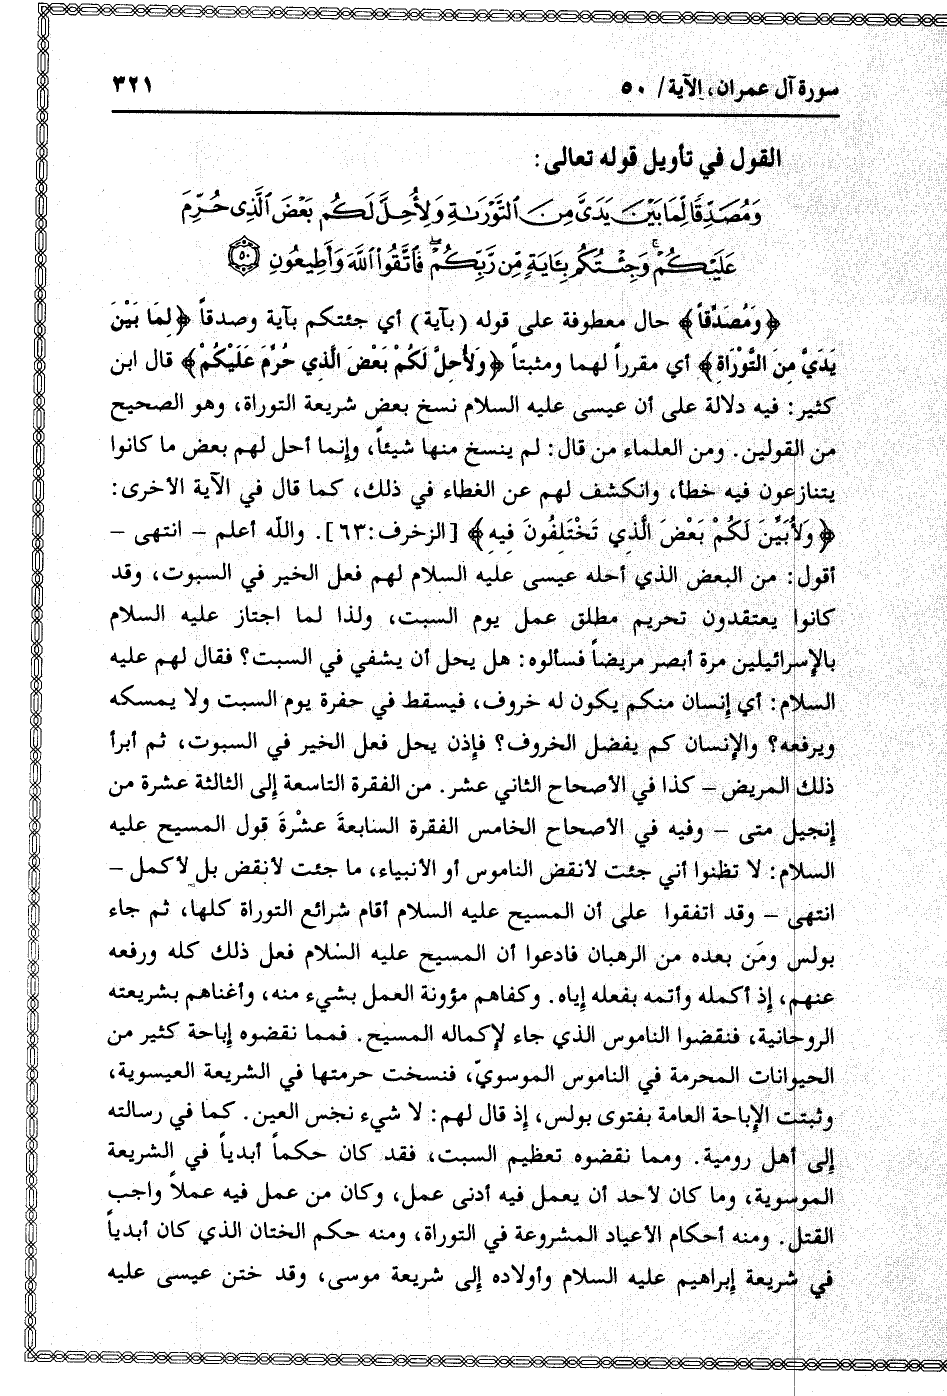 سورة آل عمران، الآية/ ٥٠
٣٢١
القول في تأويل قوله تعالى:
وَمُصَدِّقًا لِّمَا بَيْنَ يَدَيَّ مِنَ ٱلتَّوْرَىٰةِ وَلِأُحِلَّ لَكُم بَعْضَ ٱلَّذِى حُرِّمَ
عَلَيْكُمْ ۚ وَجِئْتُكُم بِـَٔايَةٍ مِّن رَّبِّكُمْ ۖ فَٱتَّقُوا۟ ٱللَّهَ وَأَطِيعُونِ ٥٠
﴿وَمُصَدِّقاً﴾ حال معطوفة على قوله (بآية) أي جئتكم بآية وصدقاً ﴿لِمَا بَيْنَ
يَدَيَّ مِنَ التَّوْرَاةِ﴾ أي مقرراً لهما ومثبتاً ﴿وَلأُحِلَّ لَكُمْ بَعْضَ الَّذِي حُرِّمَ عَلَيْكُمْ﴾ قال ابن
كثير: فيه دلالة على أن عيسى عليه السلام نسخ بعض شريعة التوراة، وهو الصحيح
من القولين. ومن العلماء من قال: لم ينسخ منها شيئاً، وإنما أحل لهم بعض ما كانوا
يتنازعون فيه خطأ، وانكشف لهم عن الغطاء في ذلك، كما قال في الآية الأخرى:
﴿وَلأُبَيِّنَ لَكُمْ بَعْضَ الَّذِي تَخْتَلِفُونَ فِيهِ﴾ [الزخرف:٦٣]. واللّه أعلم – انتهى –
أقول: من البعض الذي أحله عيسى عليه السلام لهم فعل الخير في السبوت، وقد
كانوا يعتقدون تحريم مطلق عمل يوم السبت، ولذا لما اجتاز عليه السلام
بالإسرائيلين مرة أبصر مريضاً فسألوه: هل يحل أن يشفي في السبت؟ فقال لهم عليه
السلام: أي إنسان منكم يكون له خروف، فيسقط في حفرة يوم السبت ولا يمسكه
ويرفعه؟ والإنسان كم يفضل الخروف؟ فإذن يحل فعل الخير في السبوت، ثم أبرأ
ذلك المريض – كذا في الأصحاح الثاني عشر. من الفقرة التاسعة إلى الثالثة عشرة من
إنجيل متى – وفيه في الأصحاح الخامس الفقرة السابعةَ عشْرةَ قول المسيح عليه
السلام: لا تظنوا أني جئت لأنقض الناموس أو الأنبياء، ما جئت لأنقض بل لأكمل –
انتهى – وقد اتفقوا على أن المسيح عليه السلام أقام شرائع التوراة كلها، ثم جاء
بولس ومَن بعده من الرهبان فادعوا أن المسيح عليه السلام فعل ذلك كله ورفعه
عنهم، إذ أكمله وأتمه بفعله إياه. وكفاهم مؤونة العمل بشيء منه، وأغناهم بشريعته
الروحانية، فنقضوا الناموس الذي جاء لإكماله المسيح. فمما نقضوه إباحة كثير من
الحيوانات المحرمة في الناموس الموسويّ، فنسخت حرمتها في الشريعة العيسوية،
وثبتت الإباحة العامة بفتوى بولس، إذ قال لهم: لا شيء نجس العين. كما في رسالته
إلى أهل رومية. ومما نقضوه تعظيم السبت، فقد كان حكماً أبدياً في الشريعة
الموسوية، وما كان لأحد أن يعمل فيه أدنى عمل، وكان من عمل فيه عملاً واجب
القتل. ومنه أحكام الأعياد المشروعة في التوراة، ومنه حكم الختان الذي كان أبدياً
في شريعة إبراهيم عليه السلام وأولاده إلى شريعة موسى، وقد ختن عيسى عليه